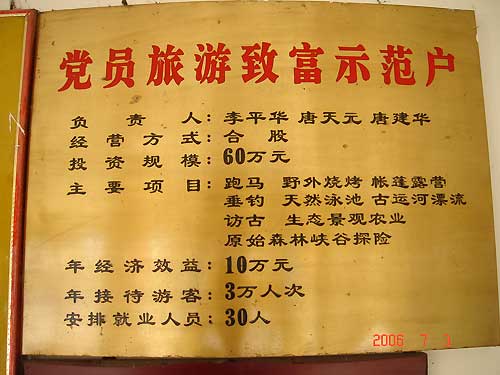 党员旅游致富示范户
负责人：李平华 唐天元 唐建华
经营方式：合 股
投资规模：60万元
主要项目：跑马 野外烧烤 帐蓬露营
垂钓 天然泳池 古运河漂流
访古 生态景观农业
原始森林峡谷探险
年经济效益：10万元
年接待游客：3万人次
安排就业人员：30人
2006 7 1